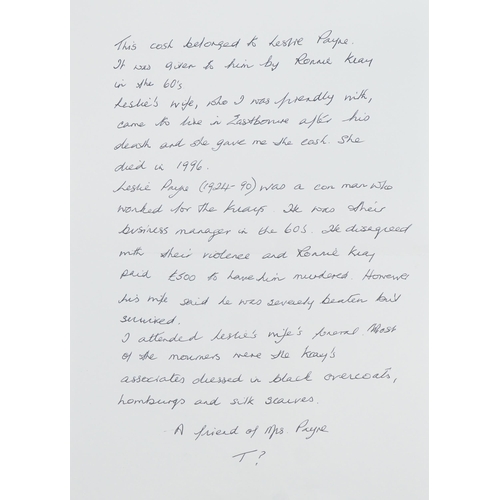 This cosh belonged to Leslie Payne.
It was given to him by Ronnie Kray
in the 60's
Leslie's wife, who I was friendly with,
came to live in Eastbourne after his
death and she gave me the cosh. She
died in 1996.
Leslie Payne (1924-90) was a con man who
worked for the Krays. He was their
business manager in the 60s. He disagreed
with their violence and Ronnie Kray
paid £500 to have him murdered. However
his wife said he was severely beaten but
survived.
I attended Leslie's wife's funeral. Most
of the mourners were the Kray's
associates dressed in black overcoats,
homburgs and silk scarves.
A friend of Mrs. Payne
T?